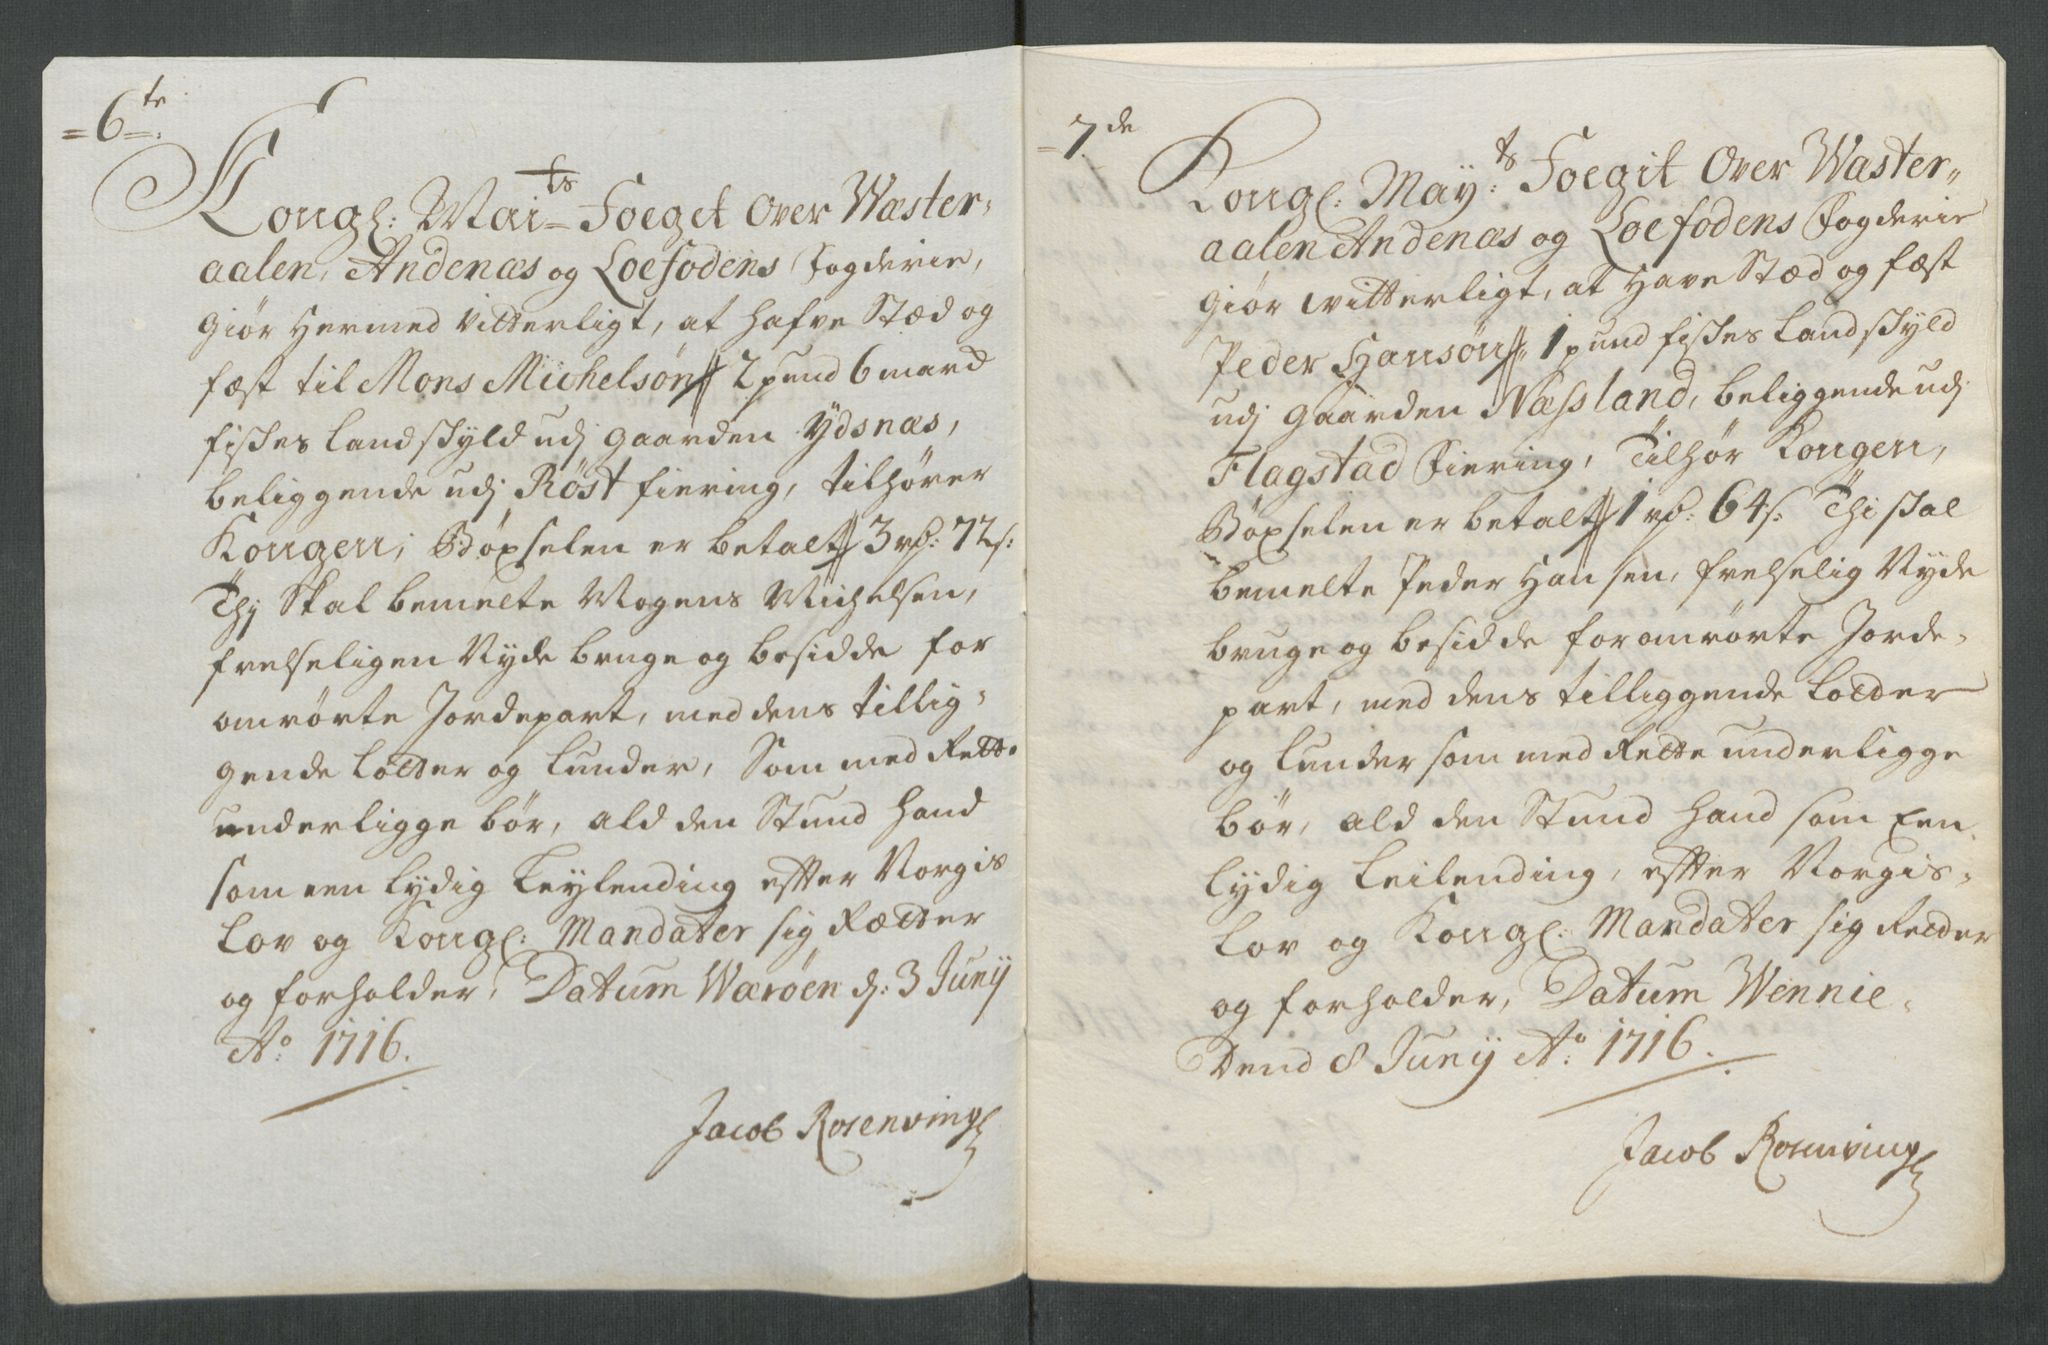 =6te=
Kongl: Mai=ts Foeget Over Wæster,
aalen, Andenæs og Loefodens Fogderie,
Giör hermed vitterligt, at hafve Stæd og
fæst til Mons Michelsön // 2 pund 6 mark
fiskes landskyld udj gaarden Ydsnæs,
beliggende udj Röst fiering, tilhører
Kongen, Böxselen er betalt // 3 rd: 72 s:
Thj Skal bemelte Mogens Michelsen,
frelseligen Nyde bruge og besidde for
omrörte Jordepart, med dens tillig=
gende lotter og lunder, Som med Rette
underligge bör, ald den Stund hand
som een lydig Leylending efter Norgis
Lov og Kongl: Mandater sig Rætter
og forholder, Datum Wæröen d: 3 Junij
Ao: 1716.
Jacob Rosenvinge
=7de
Kongl: May:ts Foegit Over Wæster,,
aalen Andenæs og Loefodens Fogderie
Giör witterligt, at have Stæd og fæst
Peder Hansön // 1 pund fiskes landskyld
udj gaarden Næssland, beliggende udj
Flagstad Fiering, Tilhör Kongen,
Böxselen er betalt // 1 rd: 64 s: Thi skal
bemelte Peder Hansen, frelselig Nyde
bruge og besidde foromrörte Jorde=
part, med dens tilliggende lotter
og lunder som med Rette underligge
bör, ald den Stund hand som Een
lydig Leilending, efter Norgis=
Lov og Kongl: Mandater sig Retter
og forholder, Datum Wennie=
Dend 8 Junij Ao: 1716.
Jacob Rosenvinge